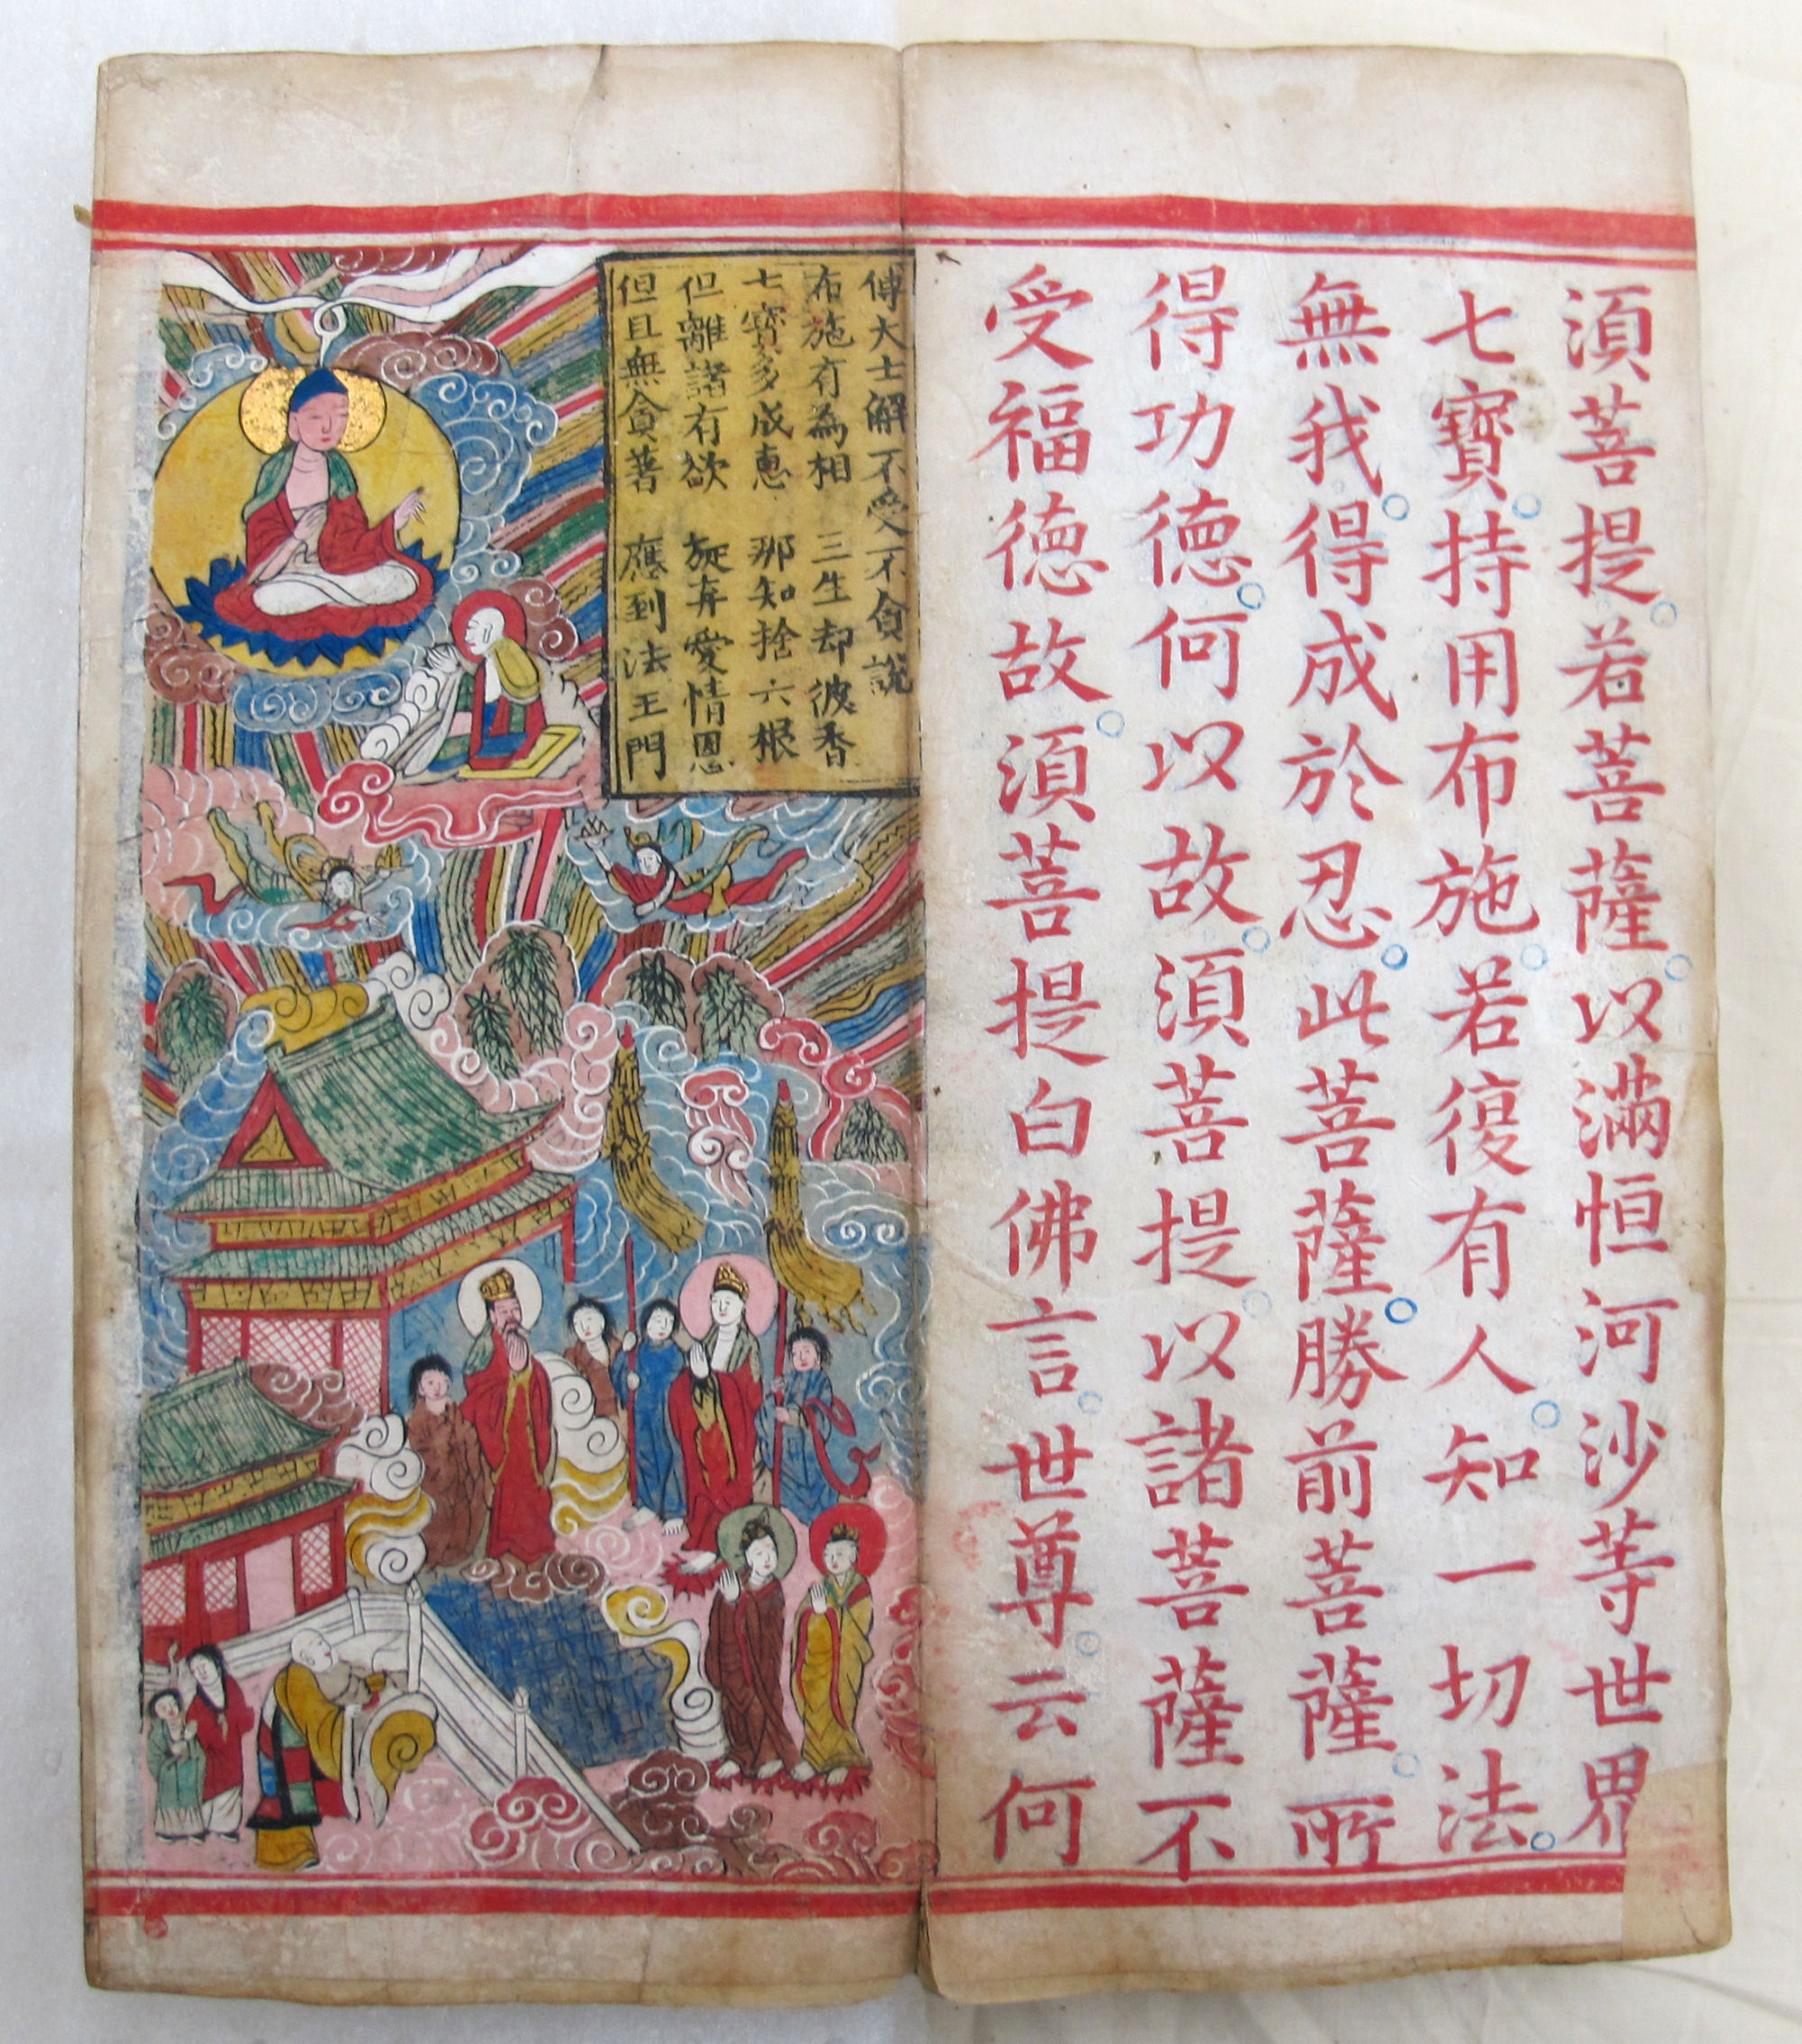 須菩提。若菩薩。以滿恒河沙等世界
七寶。持用布施。若復有人。知一切法。
無我。得成於忍。此菩薩。勝前菩薩。所
得功德。何以故。須菩提。以諸菩薩不
受福德故。須菩提白佛言。世尊。云何
傅大士解不受不貪說
布施有為相 三生却彼
七寶多成惠 那知捨六根
但離諸有欲 旋弃愛情恩
但且無貪著 應到法王門